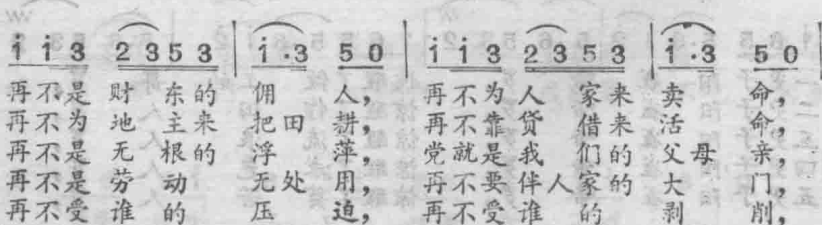 i i 3 2 3 5 3 | i · 3 5 0 | i i 3 2 3 5 3 | i · 3 5 0 |
再不是财东的佣人，再不为人家来卖命，
再不为地主来把田耕，再不靠贷借来活命，
再不是无根的浮萍，党就是我们的父母亲，
再不是劳动无处用，再不要伴人家的大门，
再不受谁的压迫，再不受谁的剥削，